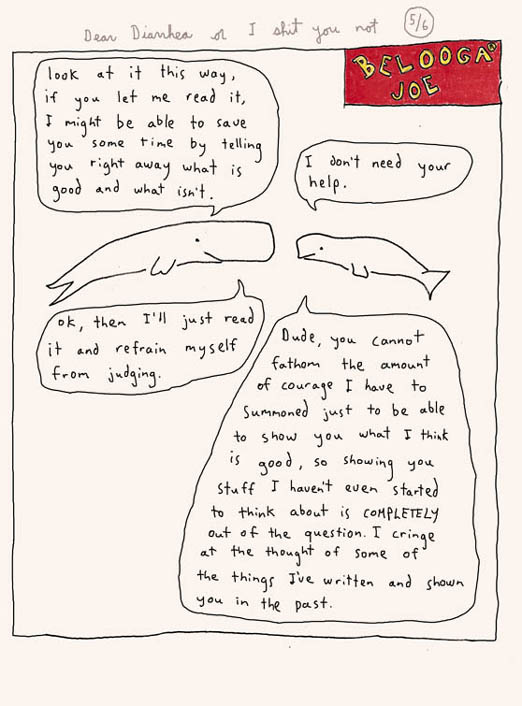 Dear Diarrhea or I shit you not 5/6
BELOOGA
JOE
look at it this way,
if you let me read it,
I might be able to save
you some time by telling
you right away what is
good and what isn't.
I don't need your
help.
ok, then I'll just read
it and refrain myself
from judging.
Dude, you cannot
fathom the amount
of courage I have to
summoned just to be able
to show you what I think
is good, so showing you
stuff I haven't even started
to think about is COMPLETELY
out of the question. I cringe
at the thought of some of
the things I've written and shown
you in the past.